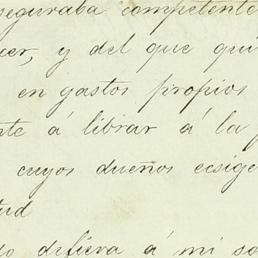 seguraba competente
cer, y del que qui
en gastos propios
nte á librar á la
cuyos dueños ecsige
tud
do difiera á mi so